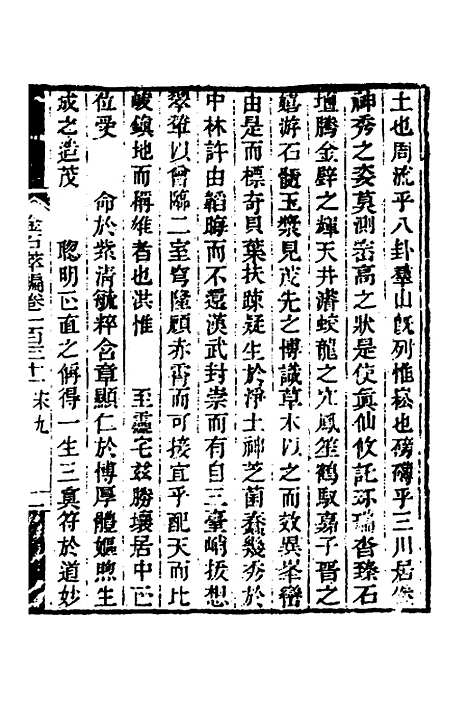 土也周流乎八卦羣山旣列惟崧也磅礴乎三川居
神秀之奕莫測嵩高之狀是使眞仙攸託環瑞沓臻石
壇騰金璧之輝天井濬蛟龍之穴鳳笙鶴馭嘉子晉之
嬉游石髓玉漿見茂先之博識草木以之而效異峯巒
由是而標奇貝葉扶疎疑生於淨土神芝菌蠢幾秀於
中林許由韜晦而不還漢武封崇而有自三臺峭拔想
翠雞以曾臨二室穹隆顧赤霄而可接宜乎配天而比
峻鎮地而稱雄者也洪惟　至靈宅兹勝壤居中正
位受　命於紫淸毓粹含章顯仁於博厚體嫗煦生
成之造茂　聰明正直之偁得一生三眞符於道妙
金石萃編卷一百三十一　宋九　二